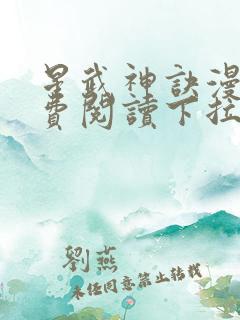 星武神訣漫
費閱讀下拉
劉燕
未经同意禁止转载